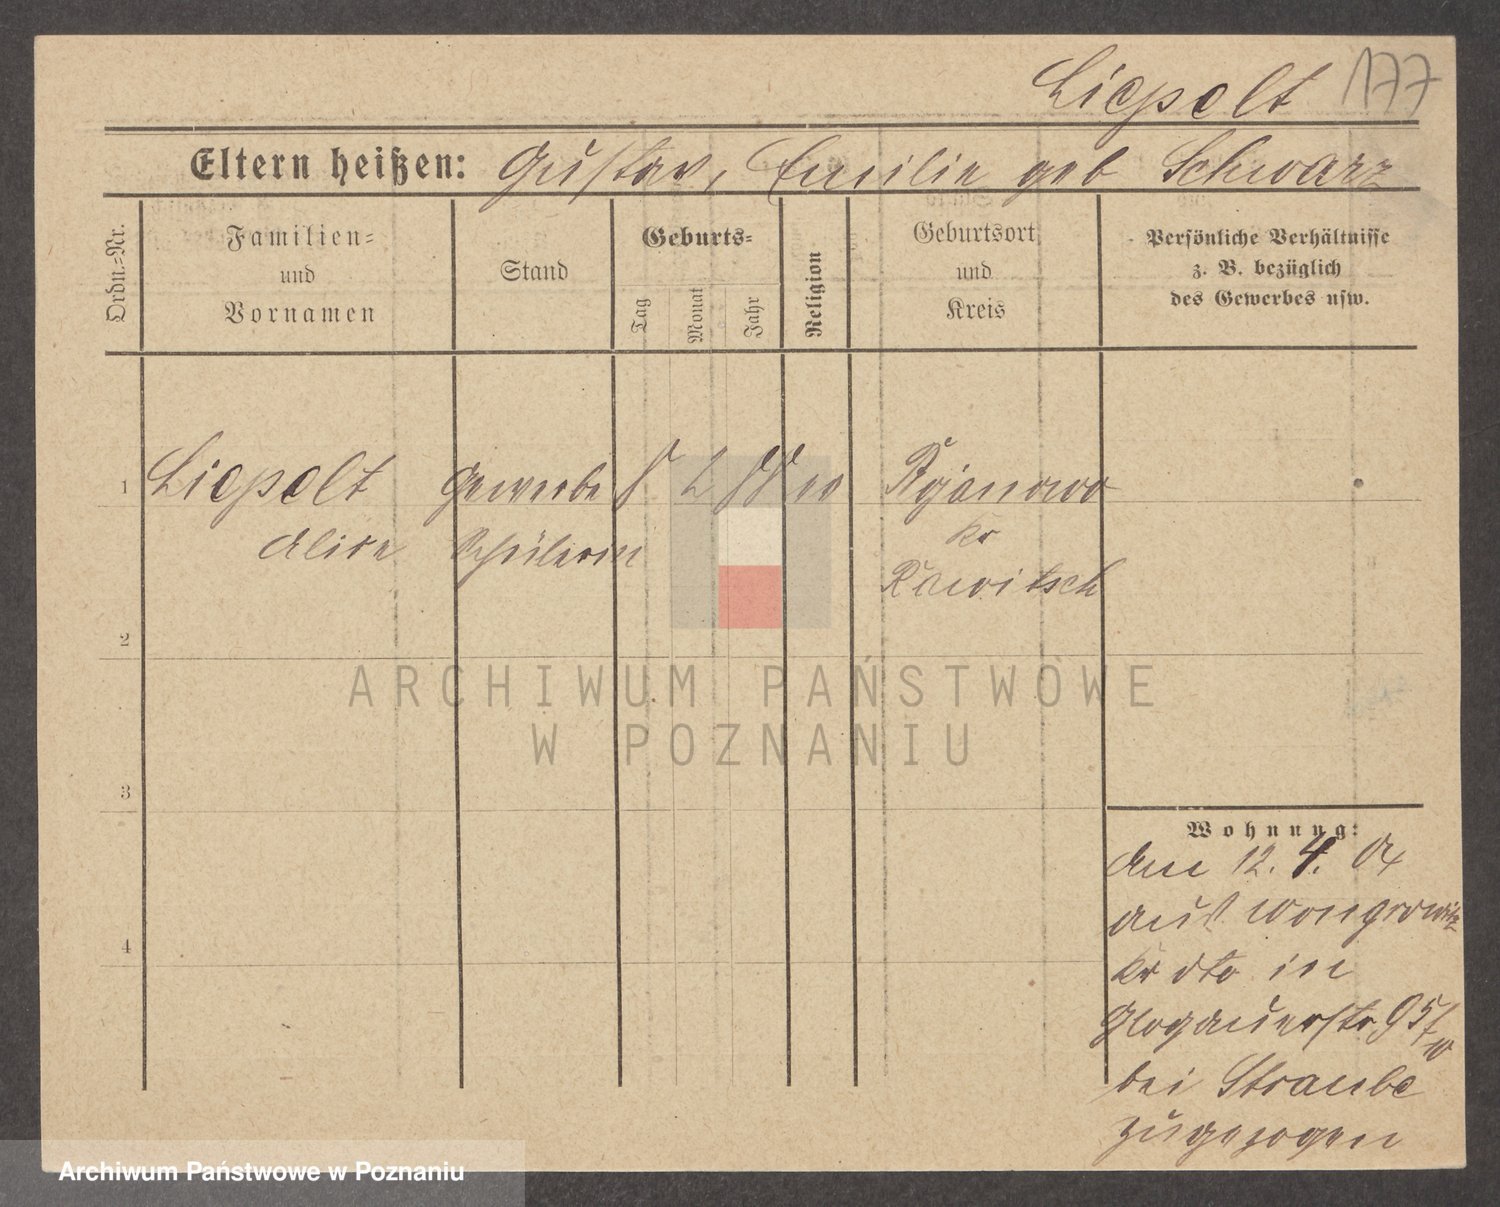 Liepelt 177
Eltern heißen: Gustav, Emilie geb Schwarz
Ordn.-Nr.
Familien-
und
Vornamen
Stand
Geburts-
Tag
Monat
Jahr
Religion
Geburtsort
und
Kreis
Persönliche Verhältnisse
z. B. bezüglich
des Gewerbes usw.
1 Liepelt Gewerbe 8 2 88 ev
Alice Schülerin
Kr
Rawitsch
2
3
4
Wohnung:
Am 12. 4. 04
aus Wongrowitz
Kr dto in
Glogauerstr. 95/
bei Straube
zugezogen
ARCHIWUM PAŃSTWOWE
W POZNANIU
Archiwum Państwowe w Poznaniu